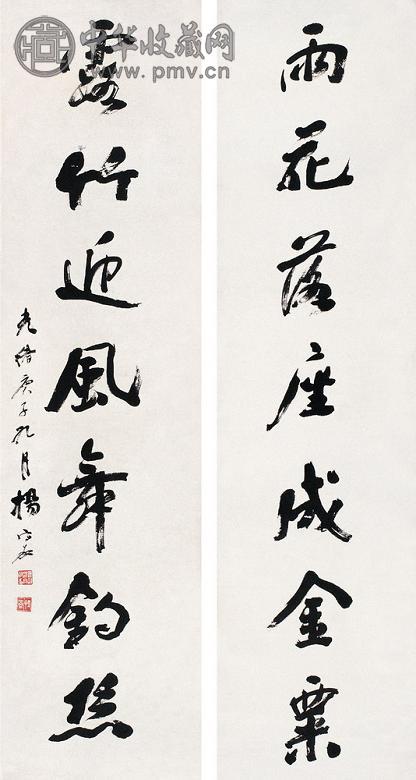 中华收藏网
www.pmv.cn
雨花落座成金粟
露竹迎風舞釣絲
光緒庚子九月楊守敬